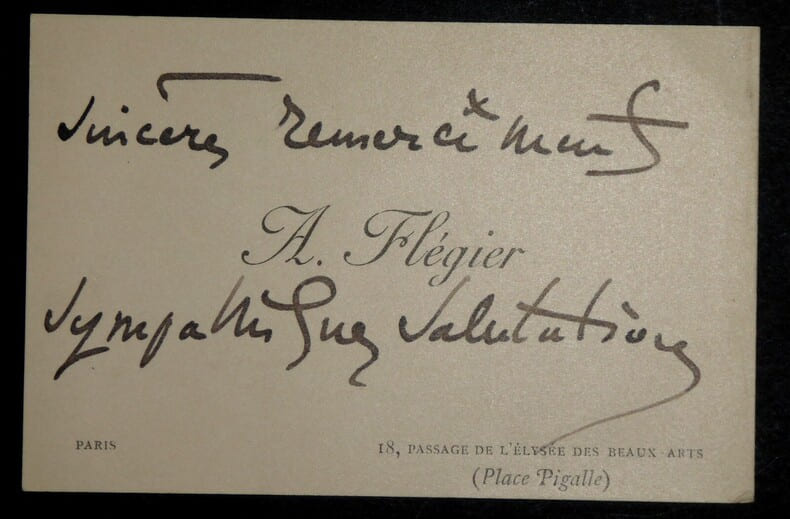 Sincères remerciements
A. Flégier
Sympathiques Salutations
PARIS
18, PASSAGE DE L'ÉLYSÉE DES BEAUX-ARTS
(Place Pigalle)